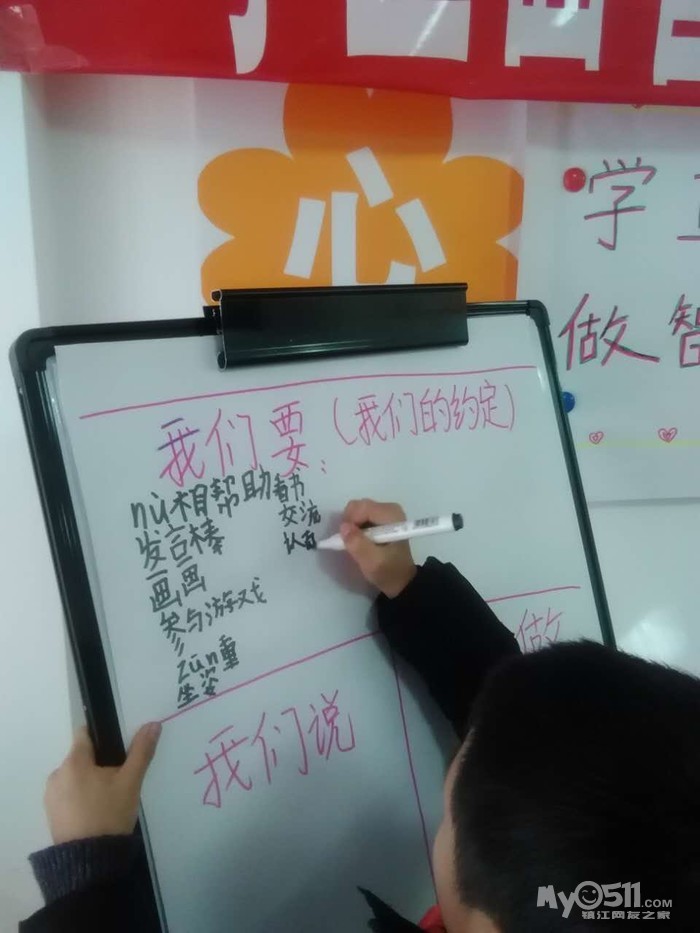 心
学
做智
我们要(我们的约定)
:
nù相帮助
发言棒
画画
参与游戏
zūn重
坐姿
看书
交流
认真
做
我们说
My0511.COM
镇江网友之家